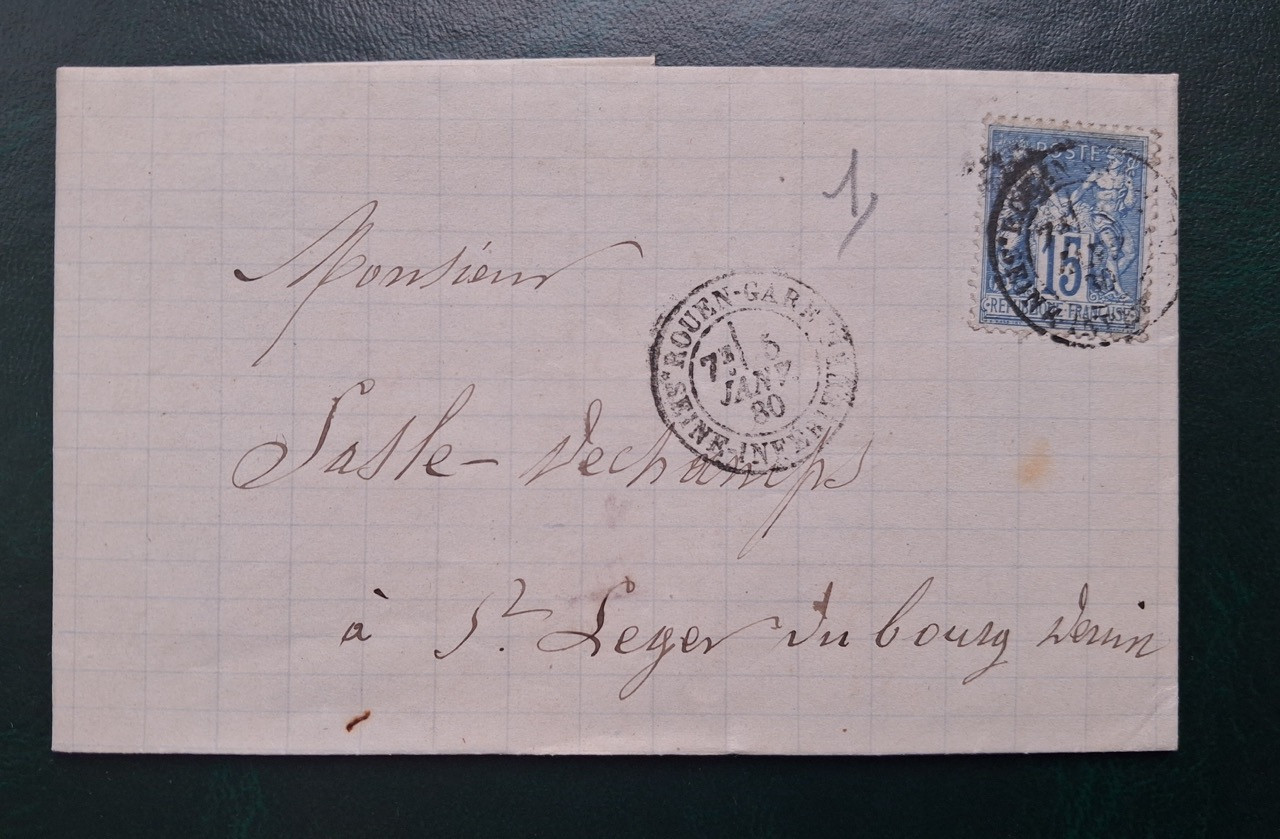 1
POSTE
15
REPUBLIQUE FRANÇAISE
Monsieur
ROUEN-GARE
7E 5
JANV.
80
SEINE-INFERRE
Sasle - Dechamps
à St. Leger du bourg Denin